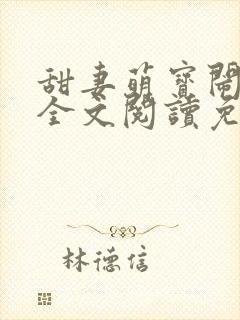 甜妻萌寶鬧
全文閱讀免
林德信